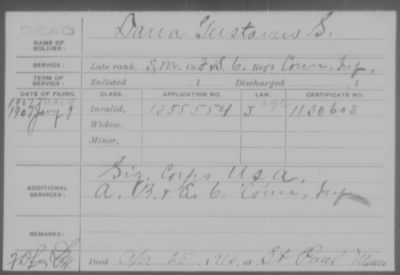 DEAD
NAME OF SOLDIER:
Dana Gustavus S.
SERVICE:
Late rank, S.M. Conn. Inf.
TERM OF SERVICE:
Enlisted , 1 Discharged , 1
DATE OF FILING. CLASS. APPLICATION NO. LAW. CERTIFICATE NO.
1907 Jany 9 Invalid, 1355554 1130603
Widow,
Minor,
ADDITIONAL SERVICES:
Sig. Corps U.S.A.
A. B. & C Conn. Inf
REMARKS:
Died Apr 25, 191 , at St Paul Minn